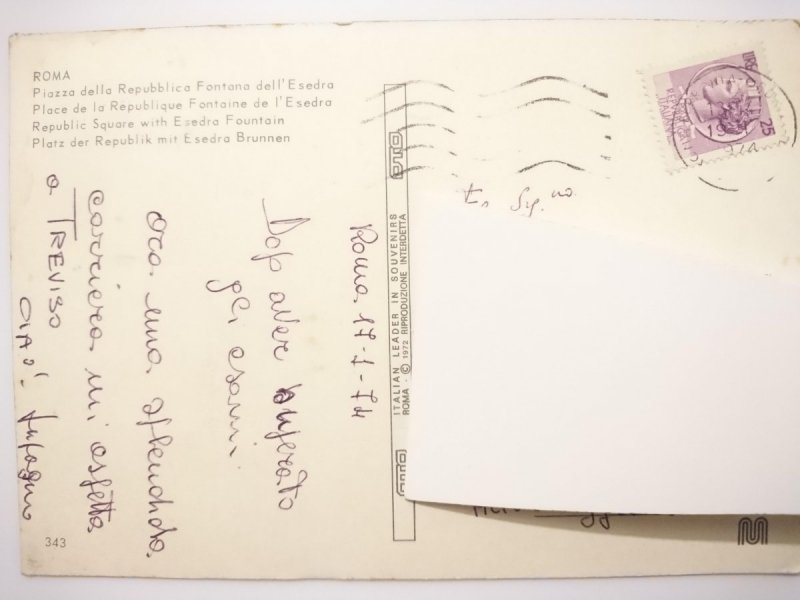 ROMA
Piazza della Repubblica Fontana dell'Esedra
Place de la Republique Fontaine de l'Esedra
Republic Square with Esedra Fountain
Platz der Republik mit Esedra Brunnen
Roma 17-1-74
Dop aver superato
gli esami
ora una splendida
carriera mi aspetta
a TREVISO
CIAO!
343
ITALIAN LEADER IN SOUVENIRS
ROMA - © 1972 RIPRODUZIONE INTERDETTA
Sig.no
25